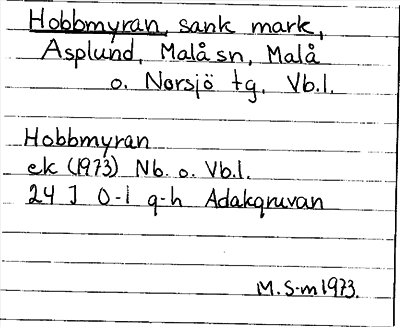 Hobbmyran, sank mark,
Asplund, Malå sn, Malå
o. Norsjö tg, Vb.l.
Hobbmyran
ek (1973) Nb. o. Vb.l.
24 J 0-1 g-h Adakgruvan
M. S-m 1973.